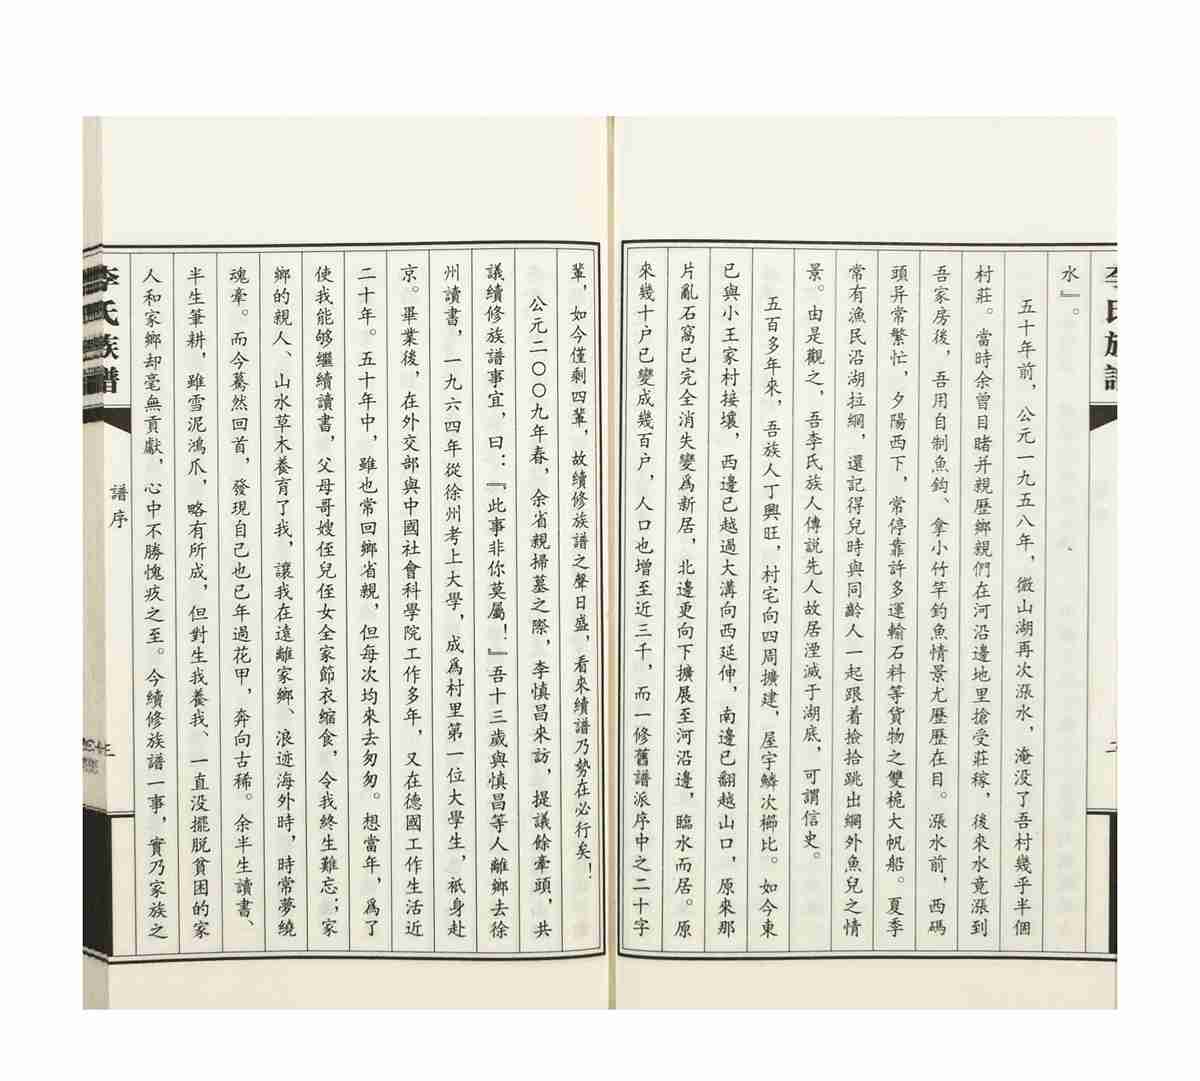 李氏族譜
水』。
五十年前，公元一九五八年，微山湖再次漲水，淹没了吾村幾乎半個
村莊。當時余曾目睹并親歷鄉親們在河沿邊地里搶受莊稼，後來水竟漲到
吾家房後，吾用自制魚鈎、拿小竹竿釣魚情景尤歷歷在目。漲水前，西碼
頭异常繁忙，夕陽西下，常停靠許多運輸石料等貨物之雙桅大帆船。夏季
常有漁民沿湖拉網，還記得兒時與同齡人一起跟着撿拾跳出網外魚兒之情
景。由是觀之，吾李氏族人傳説先人故居湮滅于湖底，可謂信史。
五百多年來，吾族人丁興旺，村宅向四周擴建，屋宇鱗次櫛比。如今東
已與小王家村接壤，西邊已越過大溝向西延伸，南邊已翻越山口，原來那
片亂石窩已完全消失變爲新居，北邊更向下擴展至河沿邊，臨水而居。原
來幾十户已變成幾百户，人口也增至近三千，而一修舊譜派序中之二十字
輩，如今僅剩四輩，故續修族譜之聲日盛，看來續譜乃勢在必行矣！
公元二〇〇九年春，余省親掃墓之際，李慎昌來訪，提議餘牽頭，共
議續修族譜事宜，曰：『此事非你莫屬！』吾十三歲與慎昌等人離鄉去徐
州讀書，一九六四年從徐州考上大學，成爲村里第一位大學生，衹身赴
京。畢業後，在外交部與中國社會科學院工作多年，又在德國工作生活近
二十年。五十年中，雖也常回鄉省親，但每次均來去匆匆。想當年，爲了
使我能够繼續讀書，父母哥嫂侄兒侄女全家節衣縮食，令我終生難忘；家
鄉的親人、山水草木養育了我，讓我在遠離家鄉、浪迹海外時，時常夢繞
魂牽。而今驀然回首，發現自己也已年過花甲，奔向古稀。余半生讀書、
半生筆耕，雖雪泥鴻爪，略有所成，但對生我養我、一直没擺脱貧困的家
人和家鄉却毫無貢獻，心中不勝愧疚之至。今續修族譜一事，實乃家族之
李氏族譜
譜序